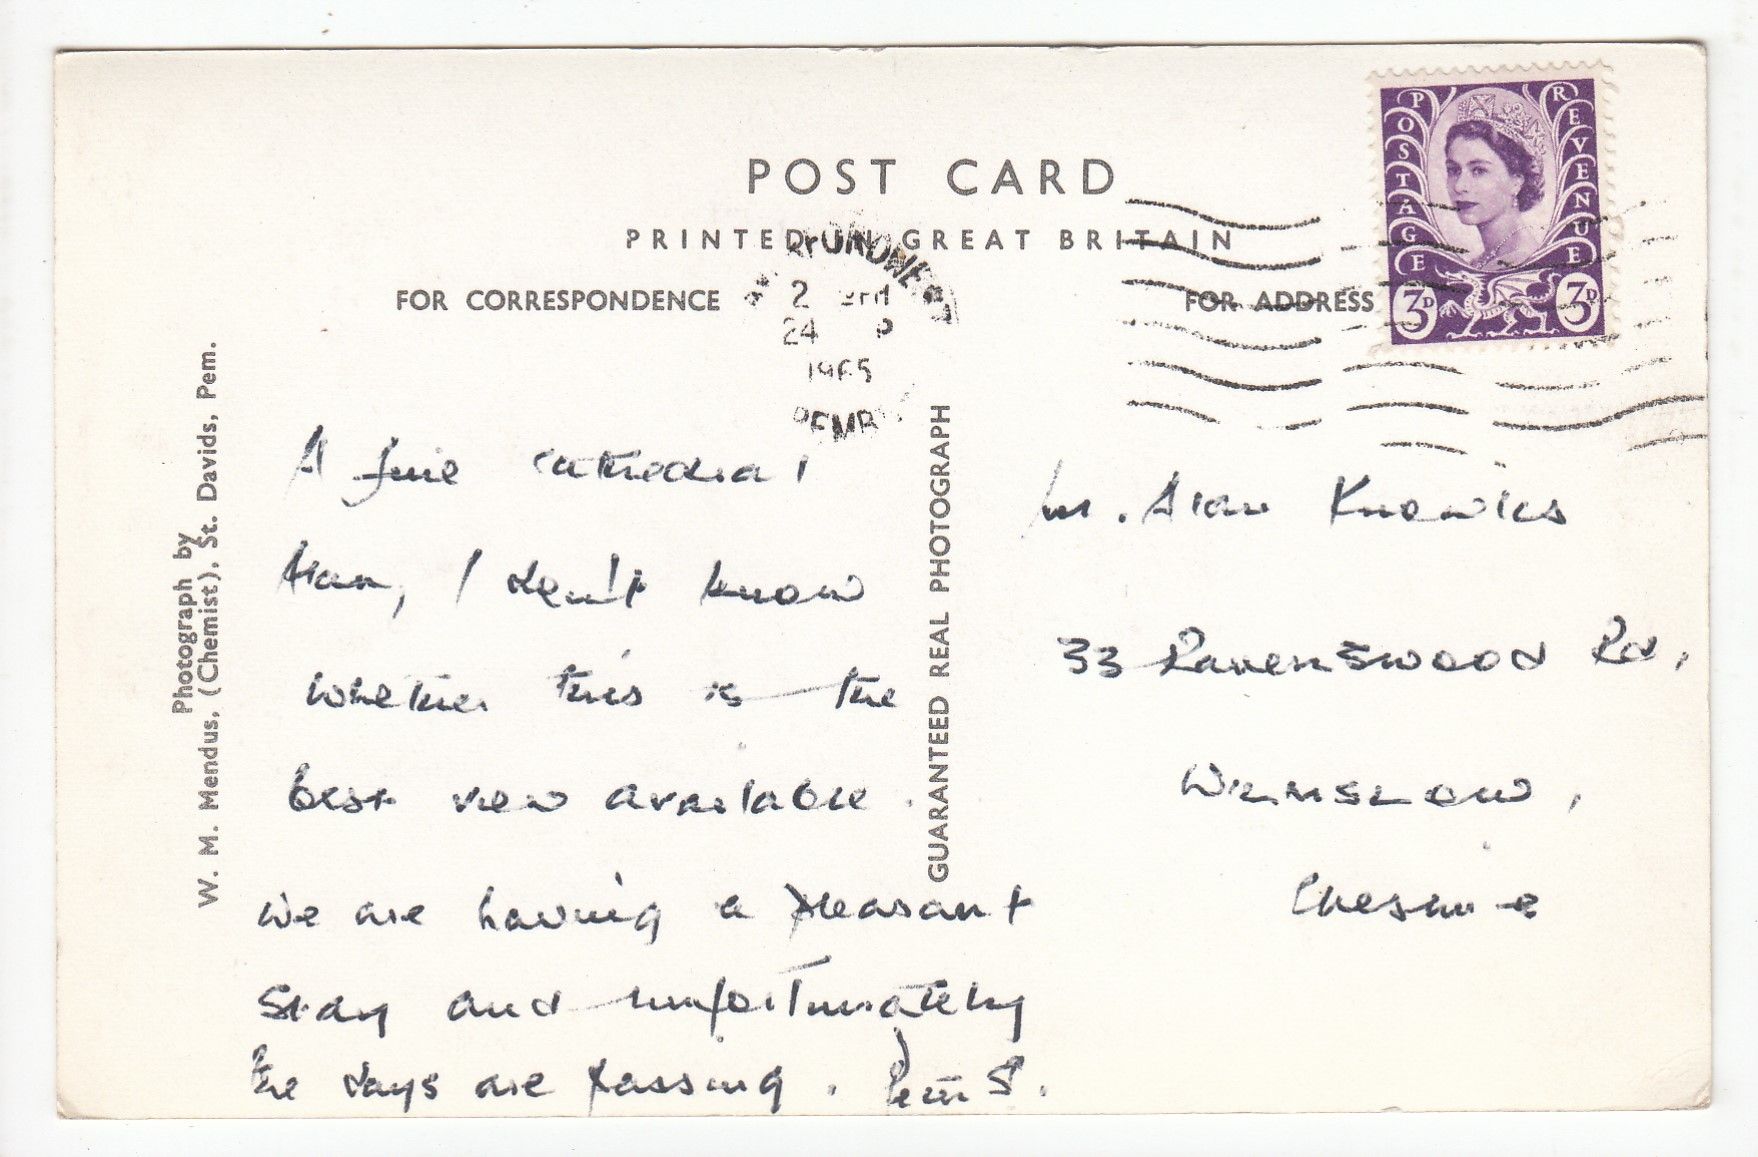 POST CARD
PRINTED IN GREAT BRITAIN
FOR CORRESPONDENCE
FOR ADDRESS
POSTAGE REVENUE
3D 3D
2 PM
24
1965
PEMB
Photograph by
W. M. Mendus, (Chemist), St. Davids, Pem.
GUARANTEED REAL PHOTOGRAPH
A fine cathedral
Alan, I don't know
whether this is the
best view available.
We are having a pleasant
stay and unfortunately
the days are passing. Peter S.
Mr. Alan Knowles
33 Ravenswood Rd,
Wilmslow,
Cheshire